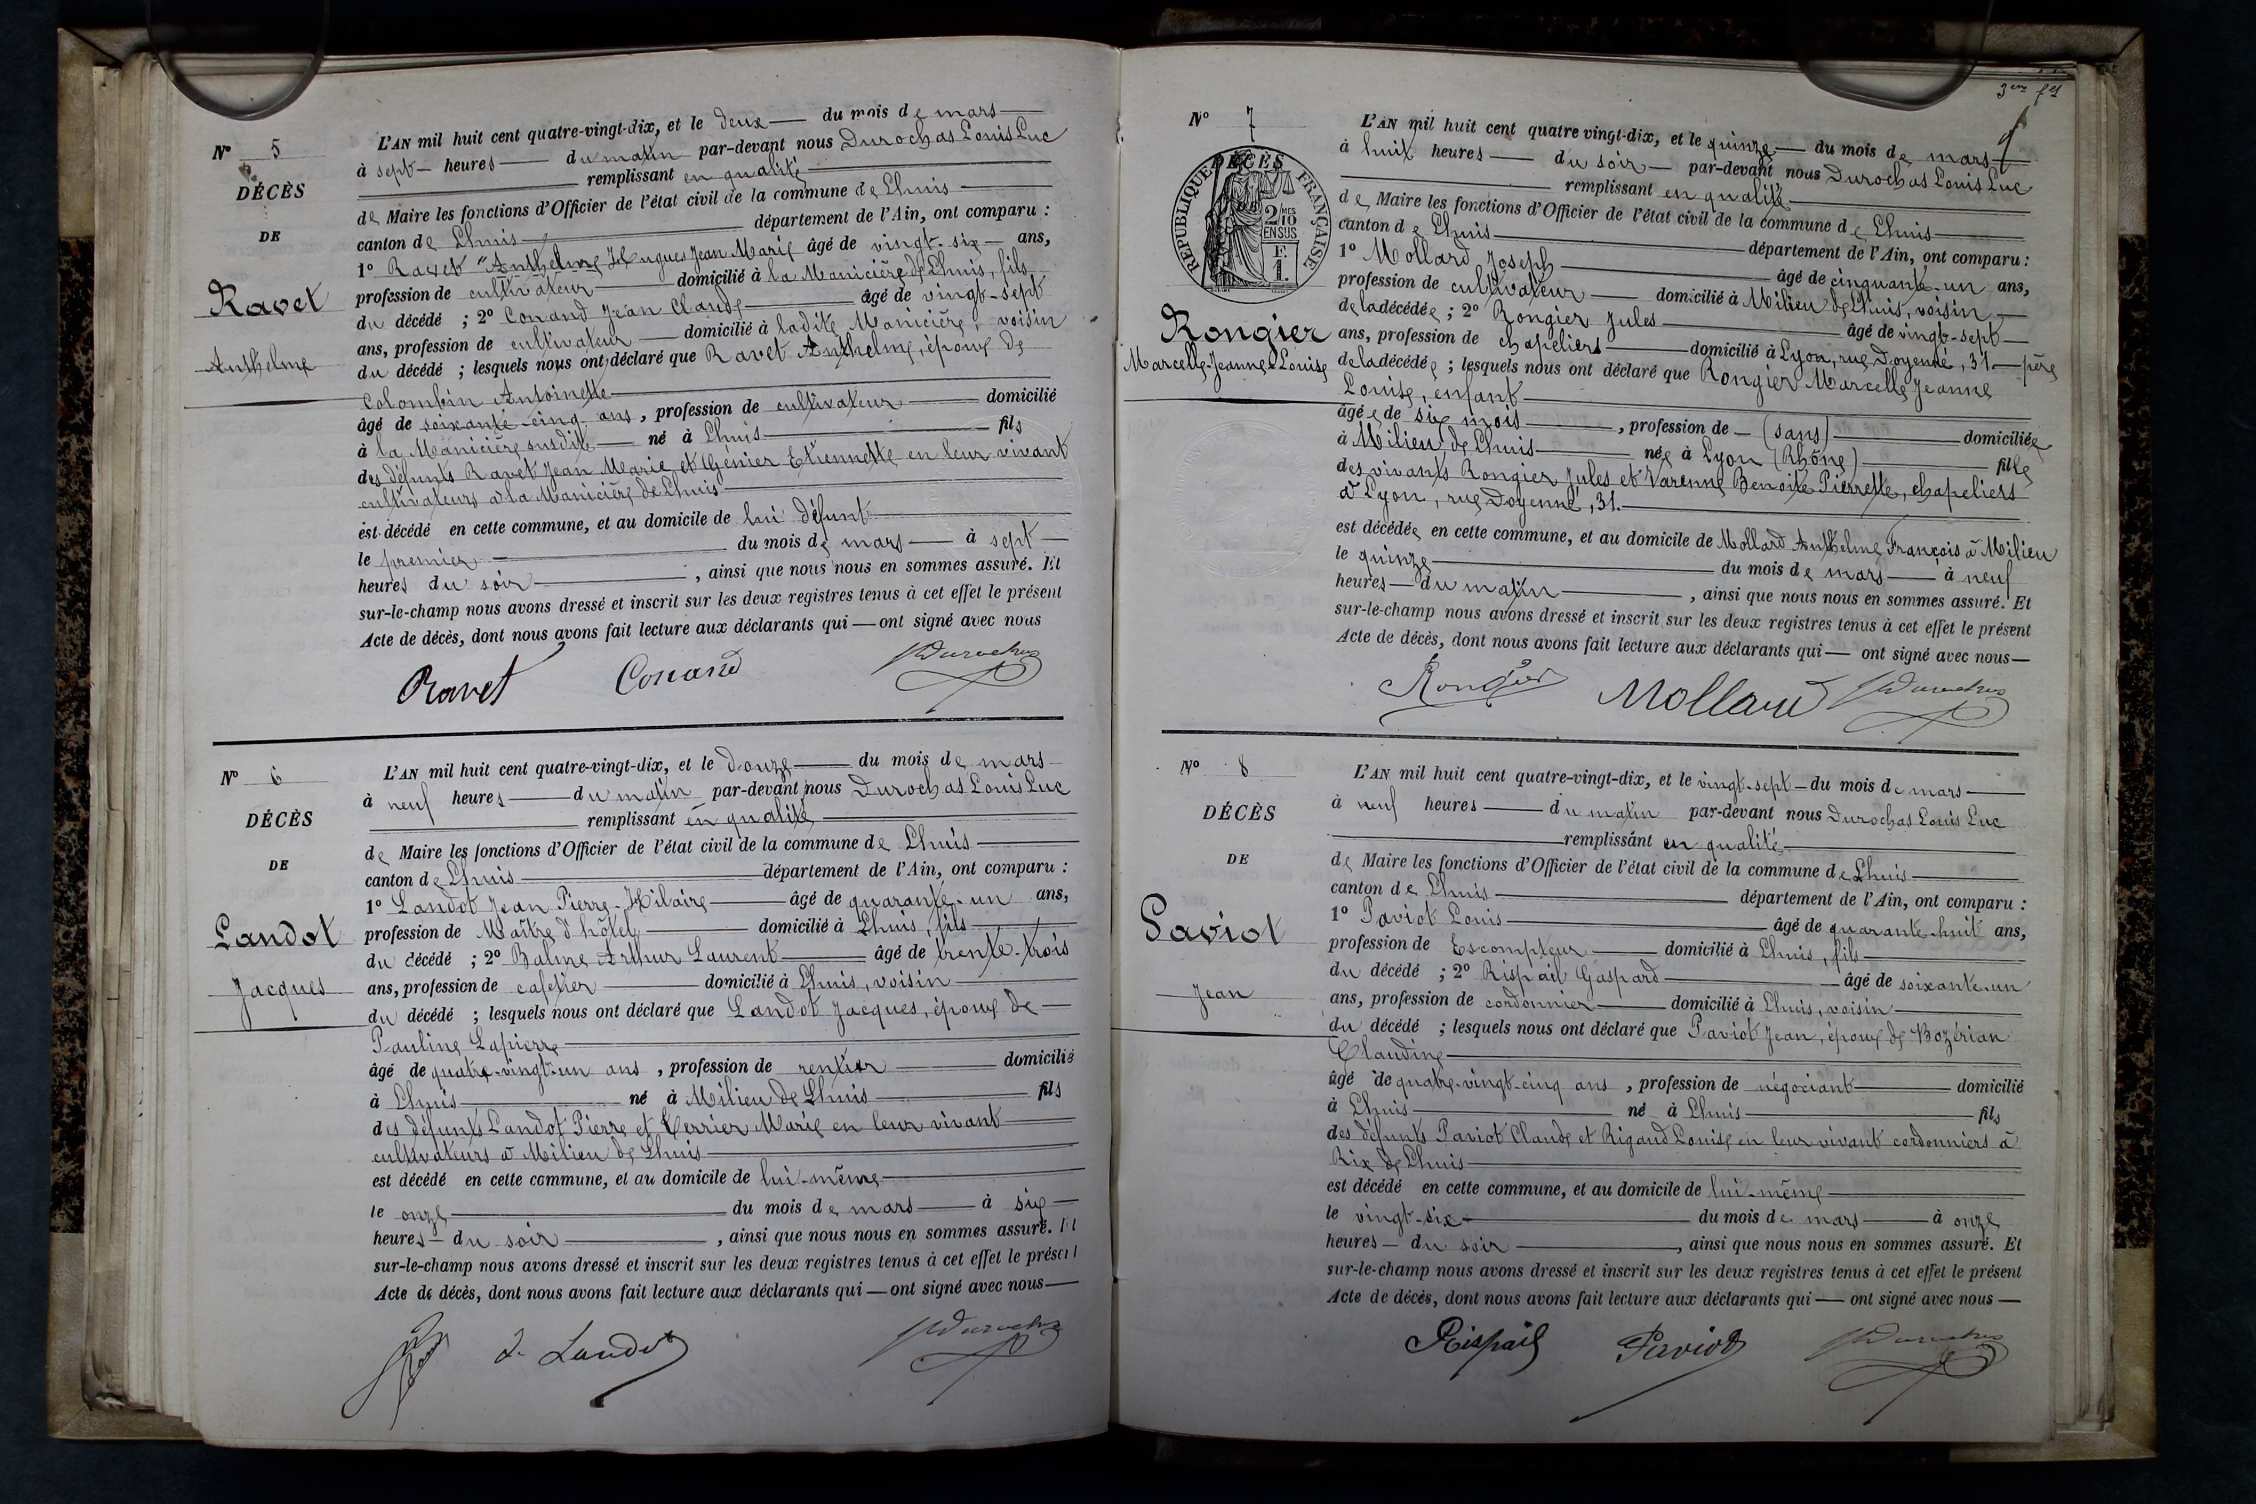 N° 5
DÉCÈS
DE
Ravet
Anthelme
L'AN mil huit cent quatre-vingt-dix, et le deux — du mois de mars —
à sept — heures — du matin par-devant nous Durochas Louis Luc
remplissant en qualité
de Maire les fonctions d'Officier de l'état civil de la commune de Lhuis —
canton de Lhuis — département de l'Ain, ont comparu :
1° Ravet "Anthelme Hugues Jean Marie âgé de vingt-six — ans,
profession de cultivateur — domicilié à la Manicière de Lhuis, fils
du décédé ; 2° Conand Jean Claude — âgé de vingt-sept
ans, profession de cultivateur — domicilié à ladite Manicière, voisin
du décédé ; lesquels nous ont déclaré que Ravet Anthelme, époux de
Colombin Antoinette —
âgé de soixante-cinq ans, profession de cultivateur — domicilié
à la Manicière susdite — né à Lhuis — fils
des défunts Ravet Jean Marie et Génier Etiennette en leur vivant
cultivateurs à la Manicière de Lhuis —
est décédé en cette commune, et au domicile de lui défunt —
le premier — du mois de mars — à sept —
heures du soir — , ainsi que nous nous en sommes assuré. Et
sur-le-champ nous avons dressé et inscrit sur les deux registres tenus à cet effet le présent
Acte de décès, dont nous avons fait lecture aux déclarants qui — ont signé avec nous
Ravet Conand Durochas
N° 6
DÉCÈS
DE
Landot
Jacques
L'AN mil huit cent quatre-vingt-dix, et le douze — du mois de mars —
à neuf heures — du matin par-devant nous Durochas Louis Luc
remplissant en qualité —
de Maire les fonctions d'Officier de l'état civil de la commune de Lhuis —
canton de Lhuis — département de l'Ain, ont comparu :
1° Landot Jean Pierre-Hilaire — âgé de quarante-un ans,
profession de Maître d'hôtel — domicilié à Lhuis, fils —
du décédé ; 2° Balme Arthur Laurent — âgé de trente-trois
ans, profession de cafetier — domicilié à Lhuis, voisin —
du décédé ; lesquels nous ont déclaré que Landot Jacques, époux de —
Pauline Lapierre —
âgé de quatre-vingt-un ans, profession de rentier — domicilié
à Lhuis — né à Milieu de Lhuis — fils
des défunts Landot Pierre et Terrier Marie en leur vivant —
cultivateurs à Milieu de Lhuis —
est décédé en cette commune, et au domicile de lui-même —
le onze — du mois de mars — à six —
heures — du soir — , ainsi que nous nous en sommes assuré. Et
sur-le-champ nous avons dressé et inscrit sur les deux registres tenus à cet effet le présent
Acte de décès, dont nous avons fait lecture aux déclarants qui — ont signé avec nous —
J. Landot Durochas
3em fet
N° 7
RÉPUBLIQUE FRANÇAISE
DÉCÈS
2/10 MES
EN SUS
F.
1.
Rongier
Marcelle-Jeanne-Louise
L'AN mil huit cent quatre vingt-dix, et le quinze — du mois de mars —
à huit heures — du soir — par-devant nous Durochas Louis Luc
remplissant en qualité —
de Maire les fonctions d'Officier de l'état civil de la commune de Lhuis —
canton de Lhuis — département de l'Ain, ont comparu :
1° Mollard Joseph — âgé de cinquante-un ans,
profession de cultivateur — domicilié à Milieu de Lhuis, voisin —
de la décédée ; 2° Rongier Jules — âgé de vingt-sept —
ans, profession de chapeliers — domicilié à Lyon, rue Doyenné, 31 — père
de la décédée ; lesquels nous ont déclaré que Rongier Marcelle Jeanne
Louise, enfant —
âgée de six mois — , profession de — (sans) — domiciliée
à Milieu de Lhuis — née à Lyon (Rhône) — fille
des vivants Rongier Jules et Varenne Benoite Pierrette, chapeliers
à Lyon, rue Doyenné, 31. —
est décédée en cette commune, et au domicile de Mollard Anthelme François à Milieu
le quinze — du mois de mars — à neuf
heures — du matin — , ainsi que nous nous en sommes assuré. Et
sur-le-champ nous avons dressé et inscrit sur les deux registres tenus à cet effet le présent
Acte de décès, dont nous avons fait lecture aux déclarants qui — ont signé avec nous —
Rongier Mollard Durochas
N° 8
DÉCÈS
DE
Paviot
Jean
L'AN mil huit cent quatre-vingt-dix, et le vingt-sept — du mois de mars —
à neuf heures — du matin par-devant nous Durochas Louis Luc
remplissant en qualité —
de Maire les fonctions d'Officier de l'état civil de la commune de Lhuis —
canton de Lhuis — département de l'Ain, ont comparu :
1° Paviot Louis — âgé de quarante-huit ans,
profession de Escompteur — domicilié à Lhuis, fils —
du décédé ; 2° Rispail Gaspard — âgé de soixante-un
ans, profession de cordonnier — domicilié à Lhuis, voisin —
du décédé ; lesquels nous ont déclaré que Paviot Jean, époux de Bozérian
Claudine —
âgé de quatre-vingt-cinq ans, profession de négociant — domicilié
à Lhuis — né à Lhuis — fils
des défunts Paviot Claude et Rigaud Louise en leur vivant cordonniers à
Rix de Lhuis —
est décédé en cette commune, et au domicile de lui-même —
le vingt-six — du mois de mars — à onze
heures — du soir — , ainsi que nous nous en sommes assuré. Et
sur-le-champ nous avons dressé et inscrit sur les deux registres tenus à cet effet le présent
Acte de décès, dont nous avons fait lecture aux déclarants qui — ont signé avec nous —
Rispail Paviot Durochas